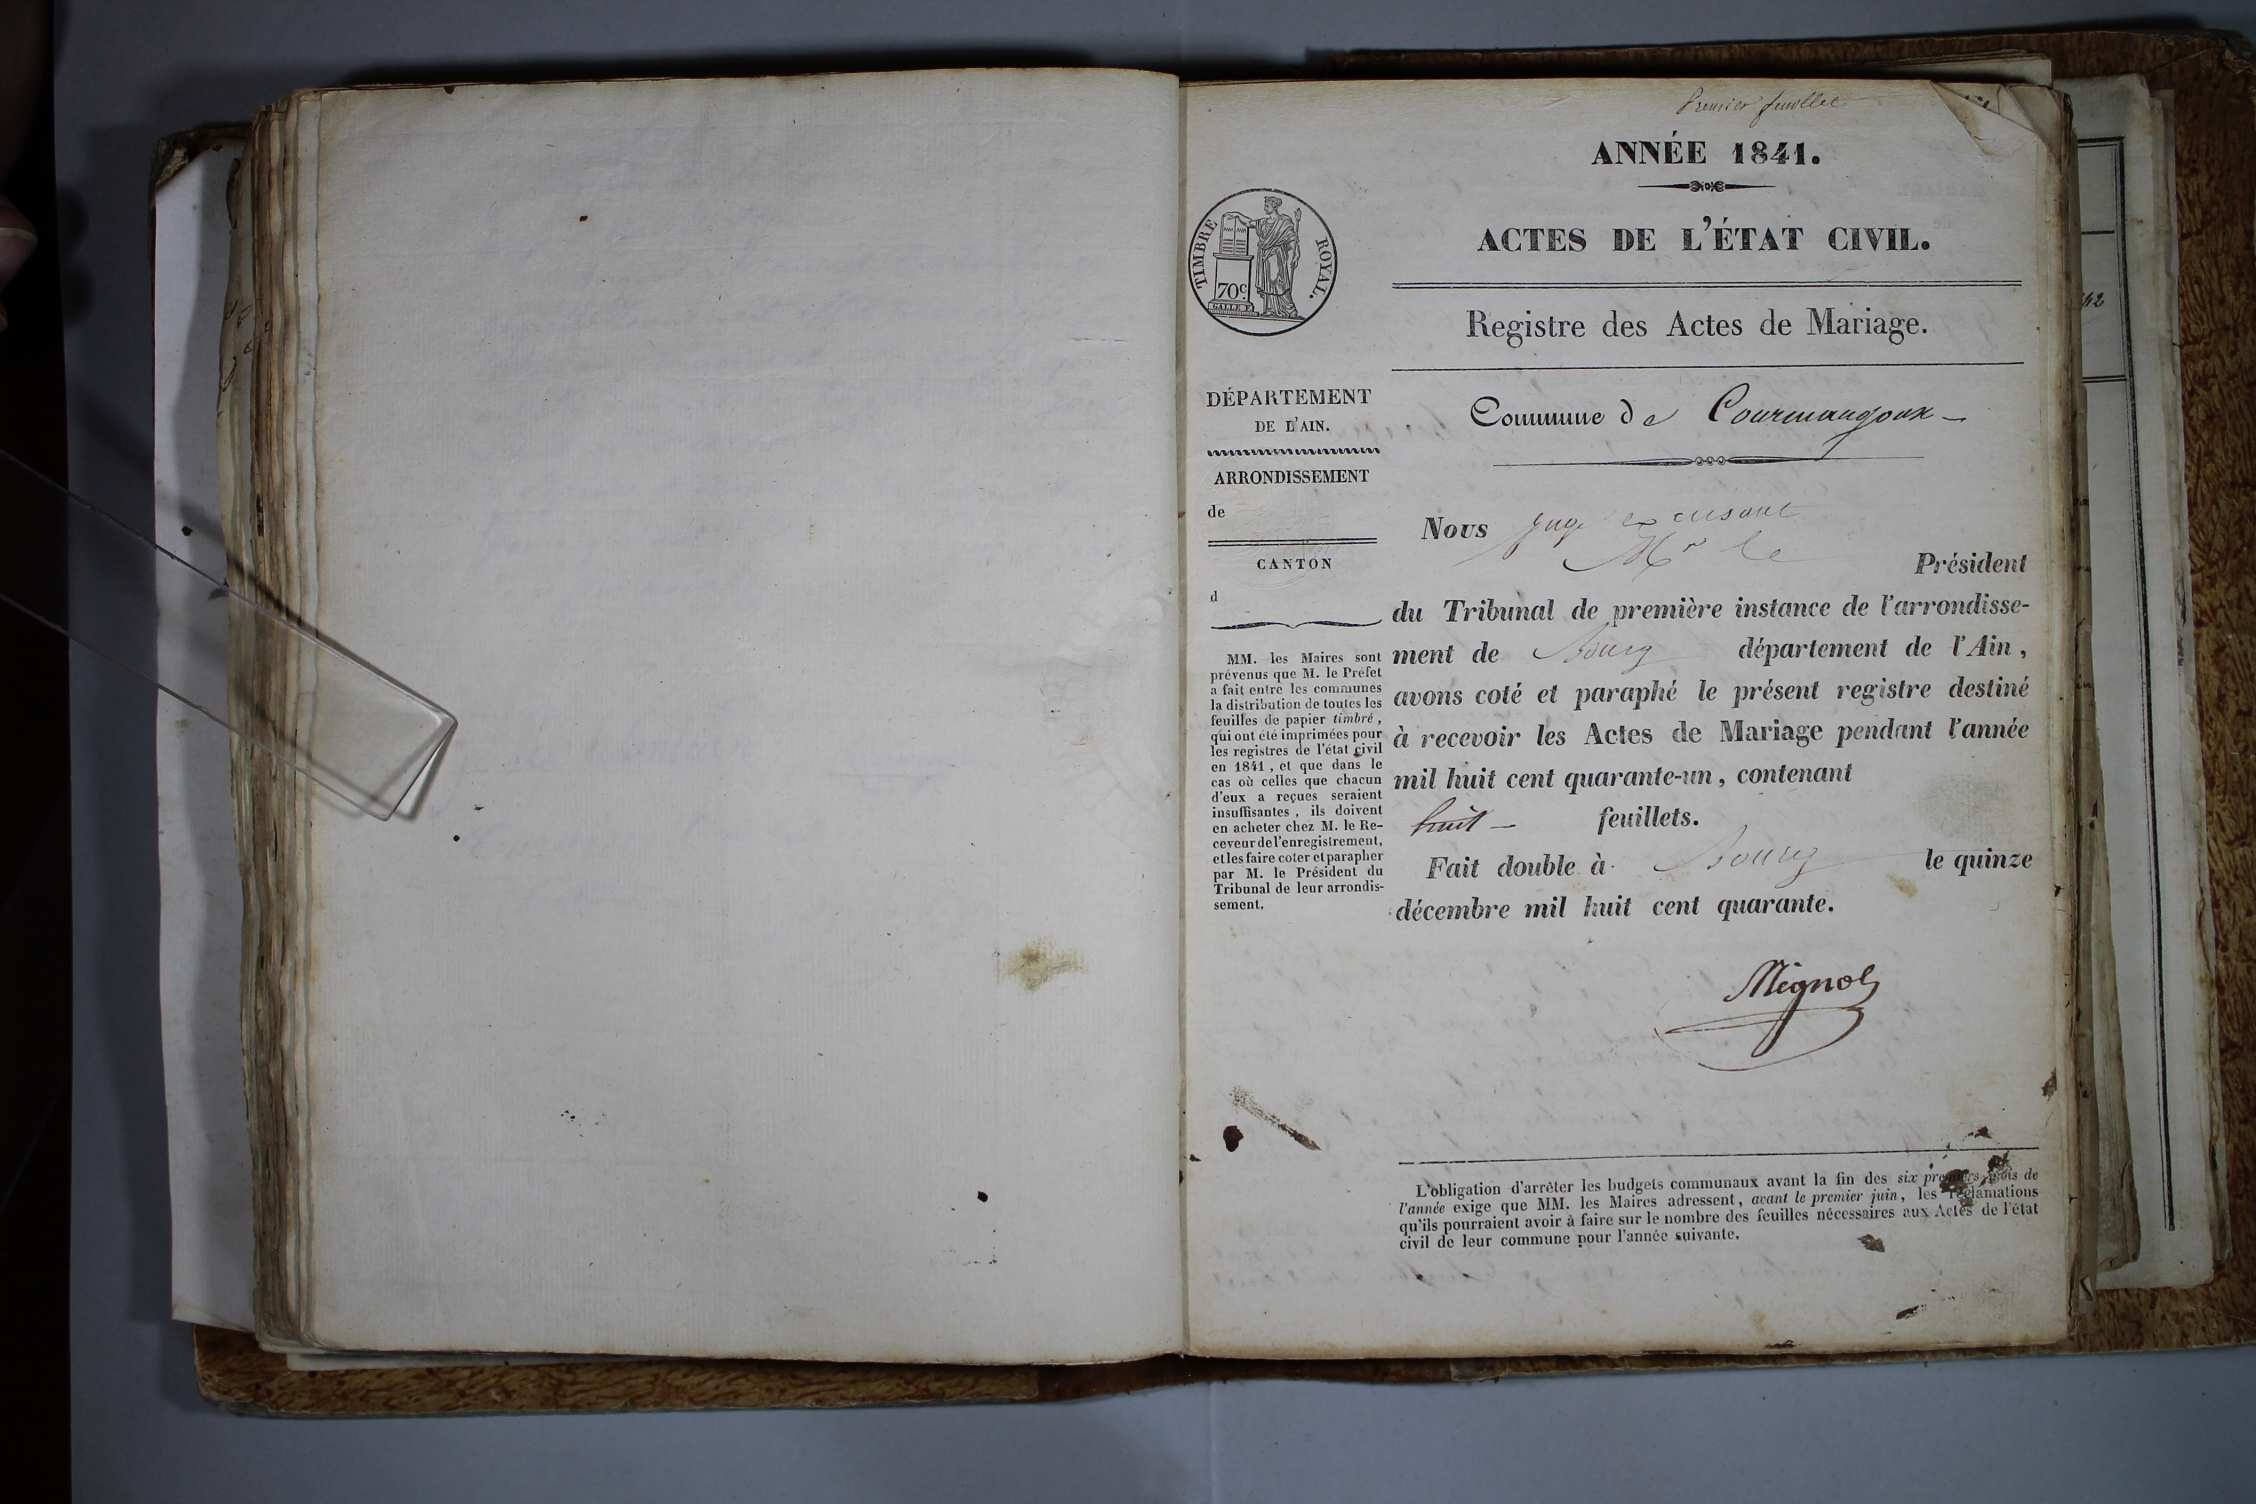 Premier feuillet
ANNÉE 1841.
ACTES DE L'ÉTAT CIVIL.
TIMBRE ROYAL.
70c.
GALLE F.
Registre des Actes de Mariage.
DÉPARTEMENT
DE L'AIN.
ARRONDISSEMENT
de
CANTON
d
MM. les Maires sont
prévenus que M. le Préfet
a fait entre les communes
la distribution de toutes les
feuilles de papier timbré,
qui ont été imprimées pour
les registres de l'état civil
en 1841, et que dans le
cas où celles que chacun
d'eux a reçues seraient
insuffisantes, ils doivent
en acheter chez M. le Re-
ceveur de l'enregistrement,
et les faire coter et parapher
par M. le Président du
Tribunal de leur arrondis-
sement.
Commune de Courmangoux
Nous juge
Mr le
Président
du Tribunal de première instance de l'arrondisse-
ment de Bourg département de l'Ain,
avons coté et paraphé le présent registre destiné
à recevoir les Actes de Mariage pendant l'année
mil huit cent quarante-un, contenant
huit feuillets.
Fait double à Bourg le quinze
décembre mil huit cent quarante.
Mignot
L'obligation d'arrêter les budgets communaux avant la fin des six premiers mois de
l'année exige que MM. les Maires adressent, avant le premier juin, les réclamations
qu'ils pourraient avoir à faire sur le nombre des feuilles nécessaires aux Actes de l'état
civil de leur commune pour l'année suivante.